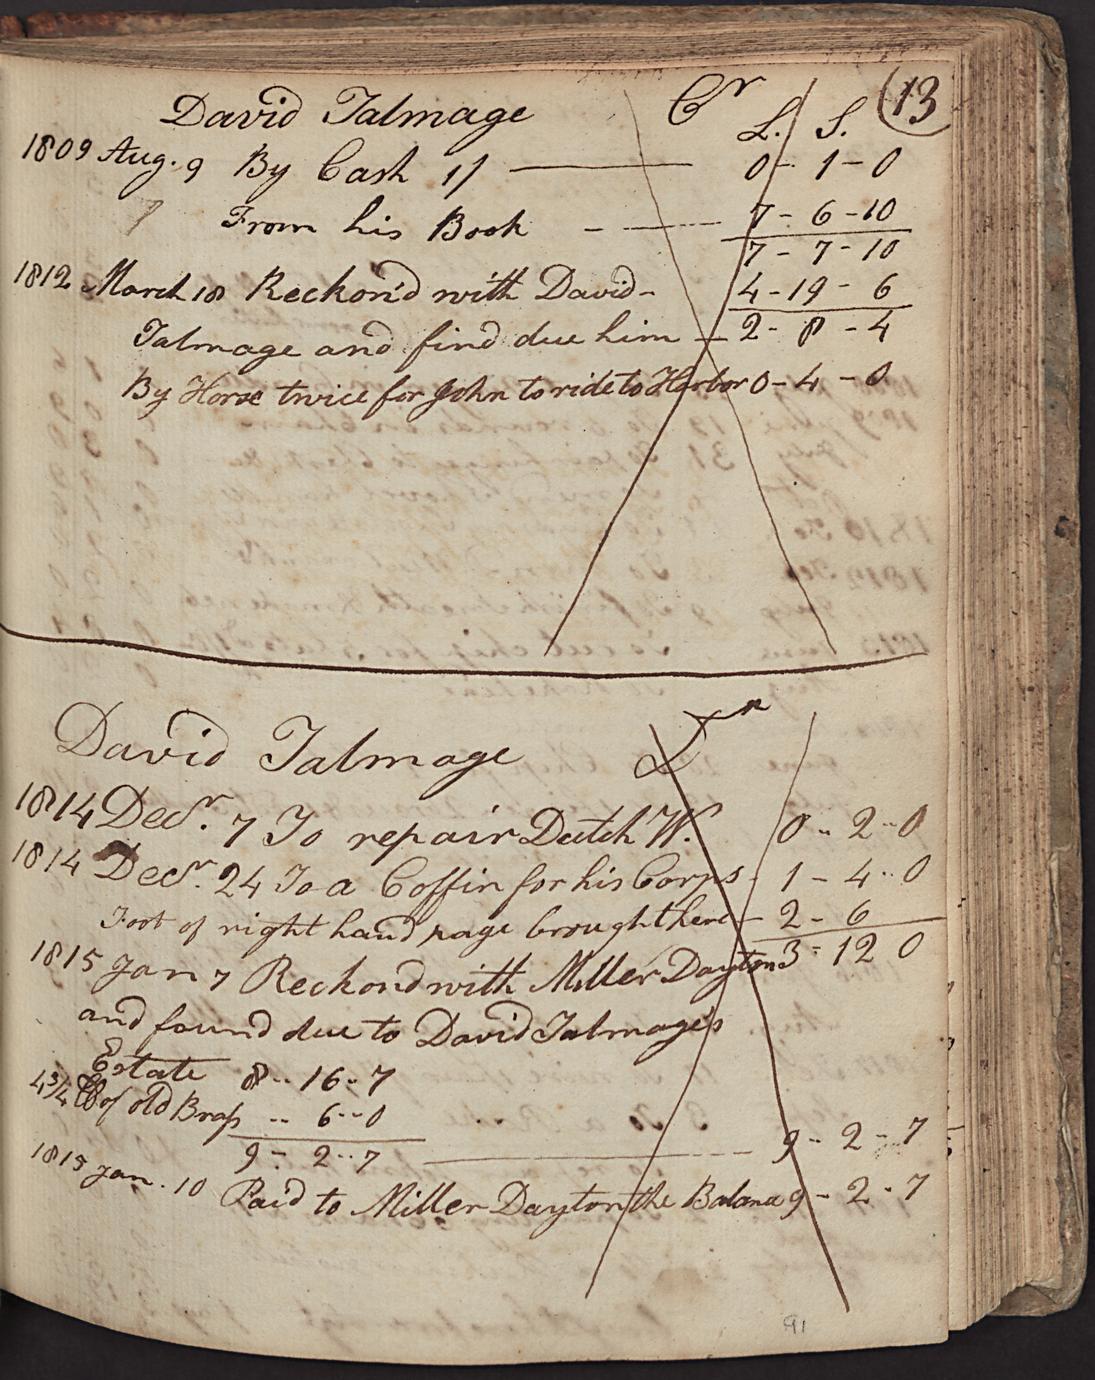 David Talmage Cr (13
L. S.
1809 Aug. 9 By Cash 1/ — 0 - 1 - 0
9 From his Book - — 7 - 6 - 10
7 - 7 - 10
1812 March 18 Reckon'd with David - 4 - 19 - 6
Talmage and find due him - 2 - 8 - 4
By Horse twice for John to ride to Harbor 0 - 4 - 0
David Talmage Dr
1814 Decr. 7 To repair Dutch W. 0 - 2 - 0
1814 Decr. 24 To a Coffin for his Corps - 1 - 4 - 0
Foot of right hand page brought here - 2 - 6
3 - 12 0
1815 Jan 7 Reckond with Miller Dayton
and found due to David Talmage's
Estate 8 - 16 - 7
4 3/4 lb of old Brass - 6 - 0
9 - 2 - 7 — 9 - 2 - 7
1815 Jan. 10 Paid to Miller Dayton the Balance 9 - 2 - 7
91